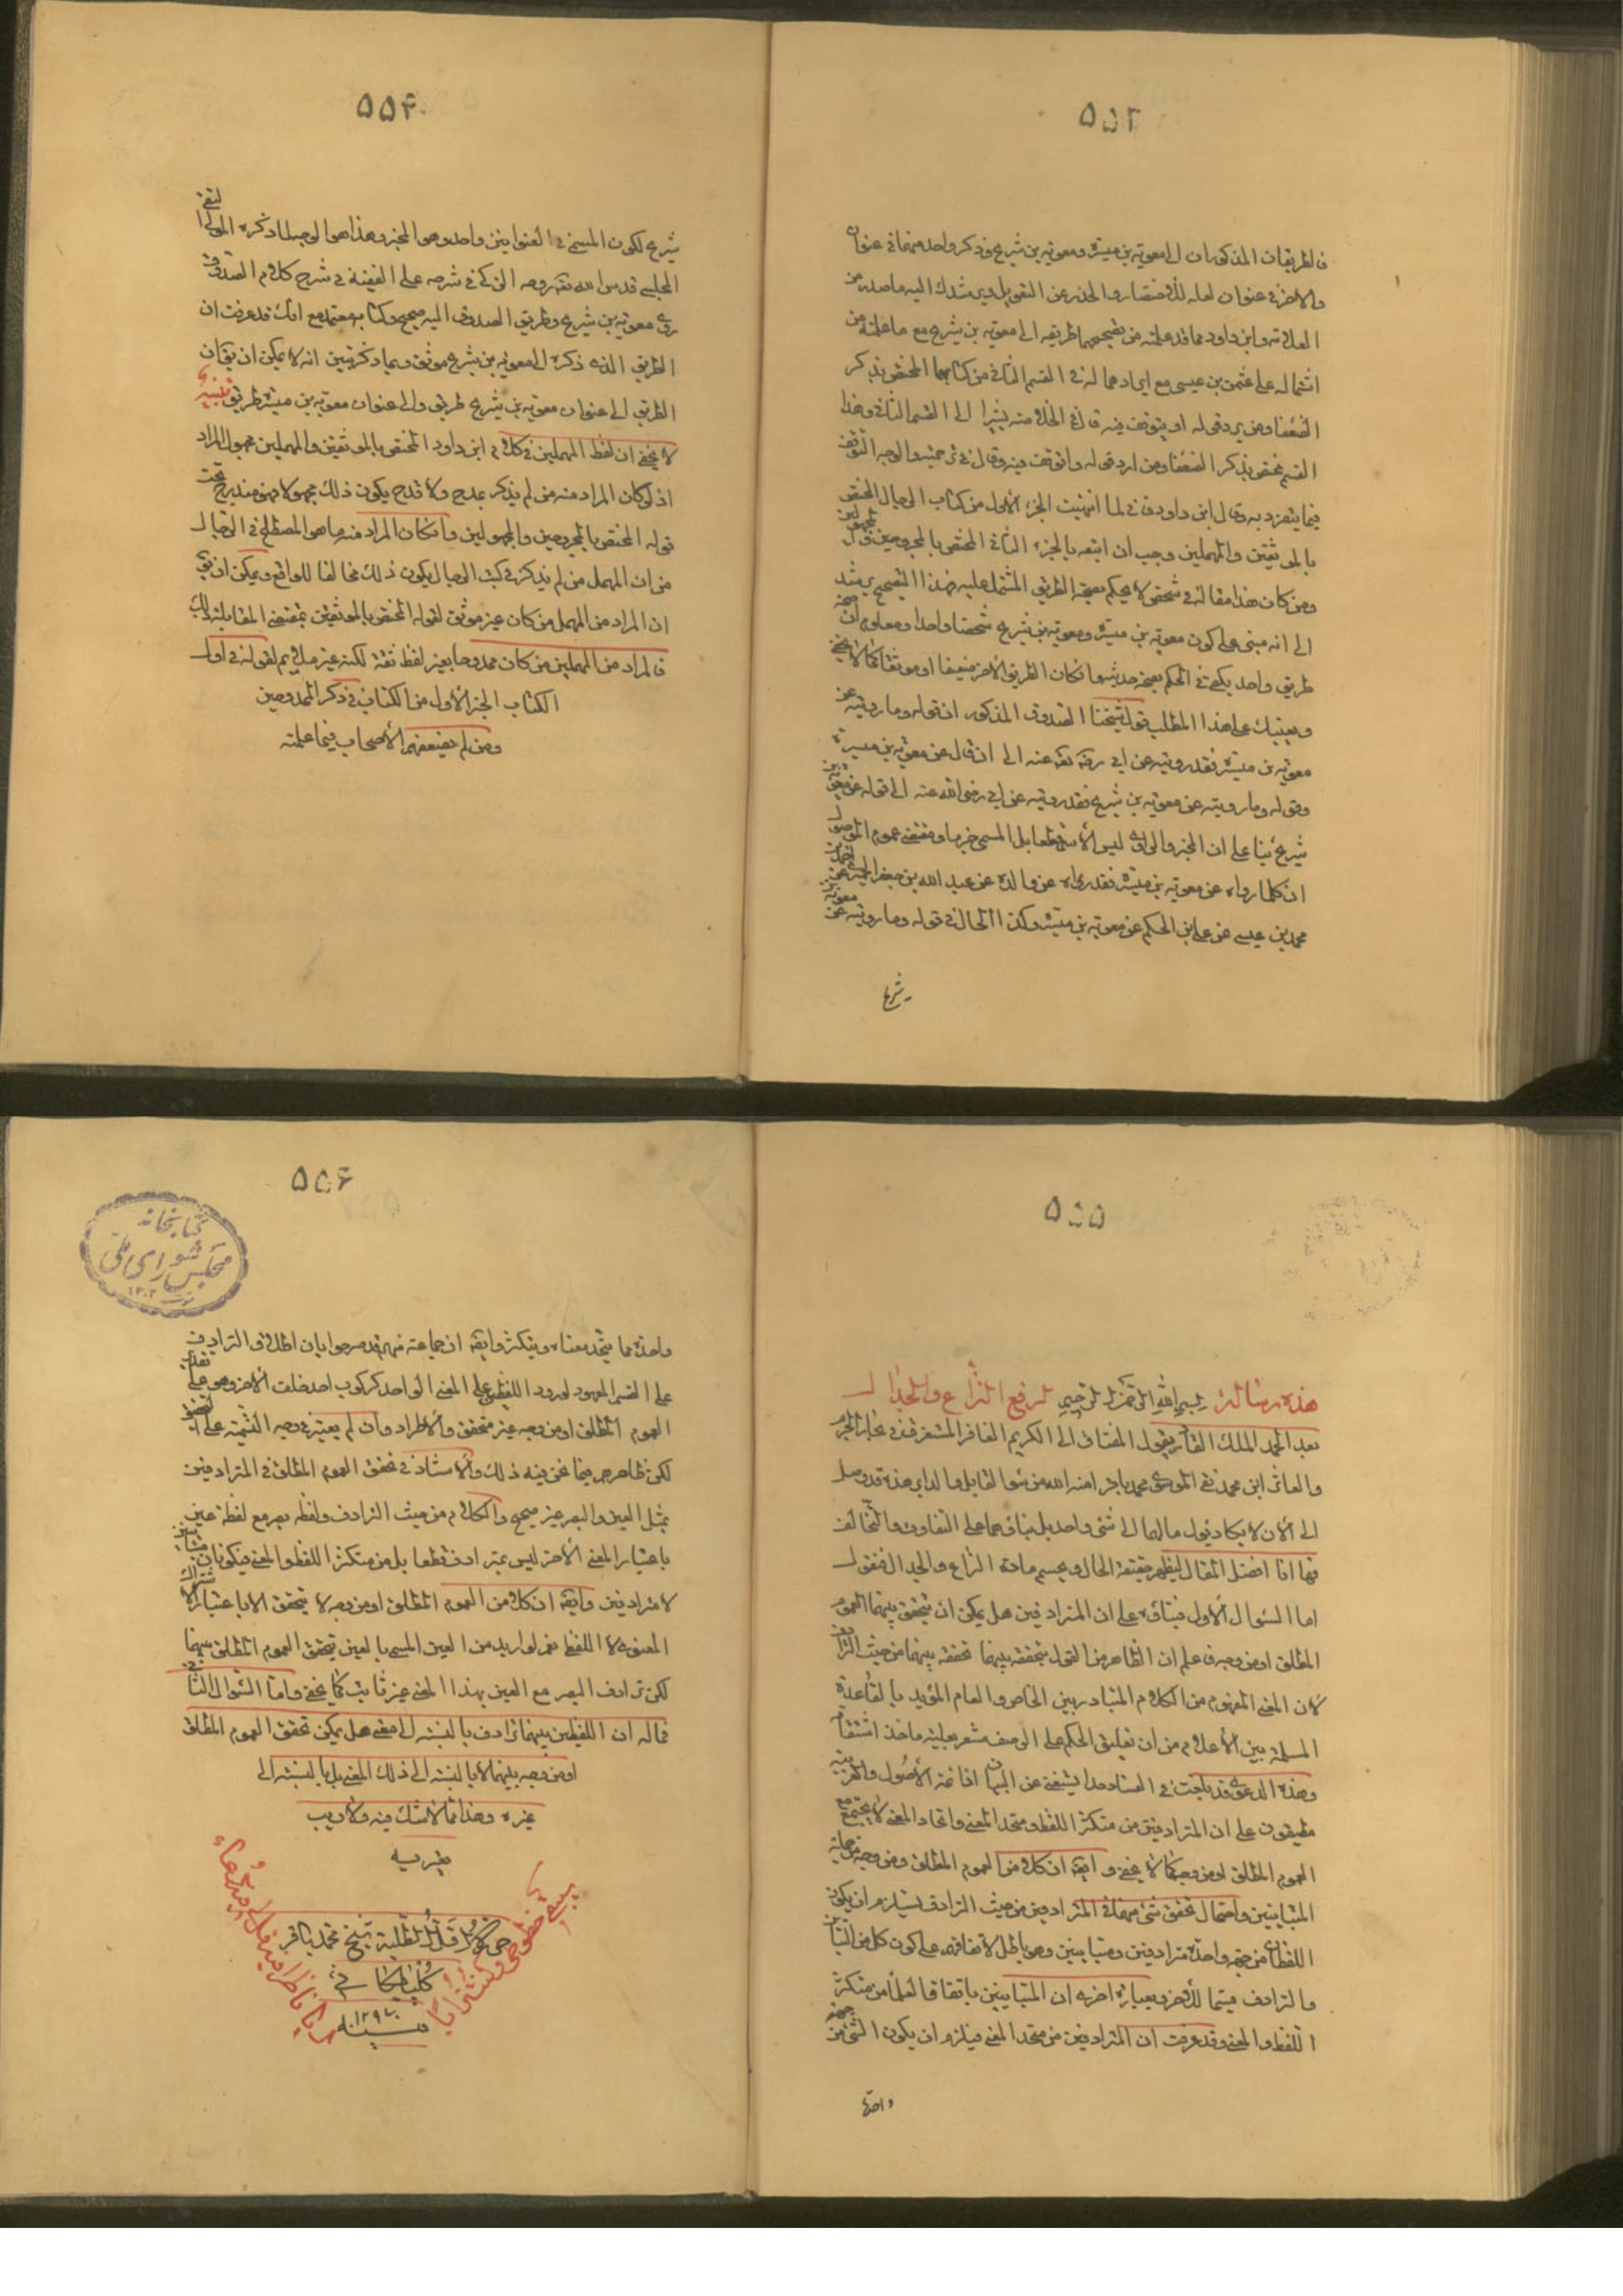 ۵۵۳
فالطريقان المذكوران الى معوية بن ميسرة ومعوية بن شريح وذكر واحد منهما في عنوان
والاخر في عنوان لعله للاختصار والحذر عن التطويل ويرشدك اليه ما صدر من
العلامة وابن داود مما قد علمته من تصحيحهما طريقه الى معوية بن شريح مع ما علمته من
اشتماله على عثمن بن عيسى مع ايرادهما له في القسم الثاني من كتابهما المختص بذكر
الضعفاء ومن يرد قوله او يتوقف فيه قال في الخلاصة مشيرا الى القسم الثاني وهذا
القسم مختص بذكر الضعفاء ومن ارد قوله واتوقف فيه وقال في ترجمته والوجه التوقف
فيما ينفرد به وقال ابن داود في لما انتهيت الجزء الاول من كتاب الرجال المختص
بالموثقين والمهملين وجب ان اتبعه بالجزء الثاني المختص بالمجروحين والمجهولين قال
ومن كان هذا مقاله في شخص لا يحكم بصحة الطريق المشتمل عليه فهذا التصحيح يرشد
الى انه مبني على كون معوية بن ميسرة ومعوية بن شريح شخصا واحدا ومعلوم ان صحة
طريق واحد يكفي في الحكم بصحة حديثه وان كان الطريق الاخر ضعيفا او موثقا كما لا يخفى
ويعينك على هذا المطلب قول شيخنا الصدوق المذكور ان قوله وما رويته عن
معوية بن ميسرة فقد رويته عن ابي رضي الله عنه الى ان قال عن معوية بن ميسرة
وقوله وما رويته عن معوية بن شريح فقد رويته عن ابي رضي الله عنه الى قوله عن معوية بن
شريح بناء على ان المخبر والراوي ليس الاسم قطعا بل المسمى جزما ومقتضى عموم الموصول
ان كلما رواه عن معوية بن ميسرة فقد رواه عن والده عن عبد الله بن جعفر الحميري عن احمد بن
محمد بن عيسى عن علي بن الحكم عن معوية بن ميسرة وكذا الحال في قوله وما رويته عن معوية بن
شريح
۵۵۴
شريح لكون المسمى في العنوانين واحد وهو المخبر وهذا هو الوجه لما ذكره المولى التقي
المجلسي قدس الله تعالى روحه الزكي في شرحه على الفقيه في شرح كلام الصدوق
روى معوية بن شريح وطريق الصدوق اليه صحيح وكتابه معتمد مع انك قد عرفت ان
الطريق الذي ذكره الى معوية بن شريح موثق وبما ذكر تبين انه لا يمكن ان يقال ان
الطريق الى عنوان معوية بن شريح طريق والى عنوان معوية بن ميسرة طريق تنبيه
لا يخفى ان لفظ المهملين في كلام ابن داود المختص بالموثقين والمهملين مجهول المراد
اذ لو كان المراد منه من لم يذكر بمدح ولا قدح يكون ذلك مجهولا فهو مندرج تحت
قوله المختص بالمجروحين والمجهولين وان كان المراد منه ما هو المصطلح في الرجال
من ان المهمل من لم يذكر في كتب الرجال يكون ذلك مخالفا للواقع ويمكن ان يقال
ان المراد من المهمل من كان غير موثق لقوله المختص بالموثقين بمقتضى المقابلة لذلك
فالمراد من المهملين من كان ممدوحا بغير لفظ ثقة لكنه غير ملايم لقوله في اول
الكتاب الجزء الاول من الكتاب في ذكر الممدوحين
ومن لم يضعفهم الاصحاب فيما علمته
۵۵۵
هذه رسالة بسم الله الرحمن الرحيم لرفع النزاع والجدال
بعد الحمد للملك القادر يقول المفتاق الى الكريم الغافر المستغرف في بحار الجرم
والعاثر ابن محمد نقي الموسوي محمد باقر امنه الله من سوء القابل والداير هذه قد وصل
الى الان لا يكاد يؤل مالهما الى شئ واحد بل بناؤهما على التفاوت والتخالف
فها انا افصل المقال ليظهر حقيقة الحال ويحسم مادة النزاع والجدال فنقول
اما السؤال الاول فبناؤه على ان المترادفين هل يمكن ان يتحقق بينهما العموم
المطلق او من وجه فاعلم ان الظاهر من القول بتحققه بينهما تحققه بينهما من حيث الترادف
لان المعنى المفهوم من الكلام المتبادر بين الخاص والعام المؤيد بالقاعدة
المسلمة بين الاعلام من ان تعليق الحكم على الوصف مشعر بعلية ماخذ اشتقاقه
وهذه الدعوى قد بلغت في الفساد حدا يستغنى عن البيان اذ ائمة الاصول والعربية
مطبقون على ان المترادفين من متكثر اللفظ ومتحد المعنى واتحاد المعنى لا يجتمع مع
العموم المطلق او من وجه كما لا يخفى وايضا ان كلا من العموم المطلق ومن وجه من جملة
المتباينين واحتمال تحقق شئ منهما في المترادفين من حيث الترادف يستلزم ان يكون
اللفظان من جهة واحدة مترادفين ومتباينين وهو باطل لاتفاقهم على كون كل من التباين
والترادف قسيما للاخر وبعبارة اخرى ان المتباينين باتفاق العلماء من متكثر
اللفظ والمعنى وقد عرفت ان المترادفين من متحد المعنى فيلزم ان يكون الشئ من جهة
واحدة
۵۵۶
كتابخانه
مجلس شورای ملی
۱۳۰۲
واحدة مما يتحد معناه ويتكثر وايضا ان جماعة منهم قد صرحوا بان اطلاق الترادف
على القسم المعهود لورود اللفظين على المعنى الواحد كركوب احد خلف الاخر وهو على تقدير
العموم المطلق او من وجه غير متحقق والاطراد وان لم يعتبر في وجه التسمية على التحقيق
لكن ظاهرهم فيما نحن فيه ذلك والاستناد في تحقق العموم المطلق في المترادفين
بمثل العين والبصر غير صحيح والكلام من حيث الترادف ولفظه بصر مع لفظة عين
باعتبار المعنى الاخر ليس بمترادف قطعا بل من متكثر اللفظ والمعنى فيكونان متباينين
لا مترادفين وايضا ان كلا من العموم المطلق او من وجه لا يتحقق الا باعتبار الاشتراك
المعنوي لا اللفظي نعم لو اريد من العين المسمى بالعين تحقق العموم المطلق بينهما
لكن ترادف البصر مع العين بهذا المعنى غير ثابت كما يخفى واما السؤال الثاني
فماله ان اللفظين بينهما ترادف بالنسبة الى معنى هل يمكن تحقق العموم المطلق
او من وجه بينهما لا بالنسبة الى ذلك المعنى بل بالنسبة الى
غيره وهذا مما لا شك فيه ولا ريب
يعتريه
حرره اقل الطلبة شيخ محمد باقر
گلپايگاني
سنه ۱۲۹۷